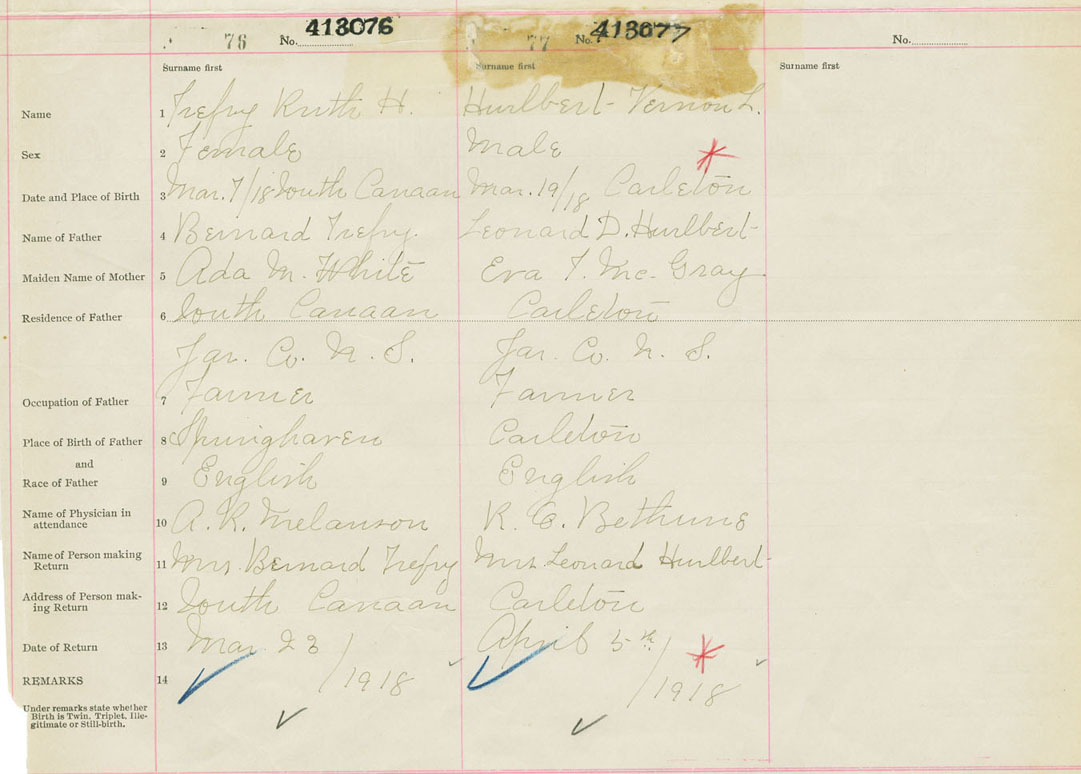 76 No. 413076 77 No. 413077 No.
Surname first Surname first Surname first
Name 1 Trefry Ruth H. Hurlbert Vernon L.
Sex 2 Female Male
Date and Place of Birth 3 Mar. 7/18 South Canaan Mar. 19/18 Carleton
Name of Father 4 Bernard Trefry. Leonard D. Hurlbert
Maiden Name of Mother 5 Ada M. White Eva T. Mc. Gray
Residence of Father 6 South Canaan Carleton
Yar. Co. N. S. Yar. Co. N. S.
Occupation of Father 7 Farmer Farmer
Place of Birth of Father 8 Springhaven Carleton
and
Race of Father 9 English English
Name of Physician in
attendance 10 A. R. Melanson K. C. Bethune
Name of Person making
Return 11 Mrs. Bernard Trefry Mrs. Leonard Hurlbert
Address of Person mak-
ing Return 12 South Canaan Carleton
Date of Return 13 Mar 23/1918 April 5th/1918
REMARKS 14
Under remarks state whether
Birth is Twin, Triplet, Ille-
gitimate or Still-birth.